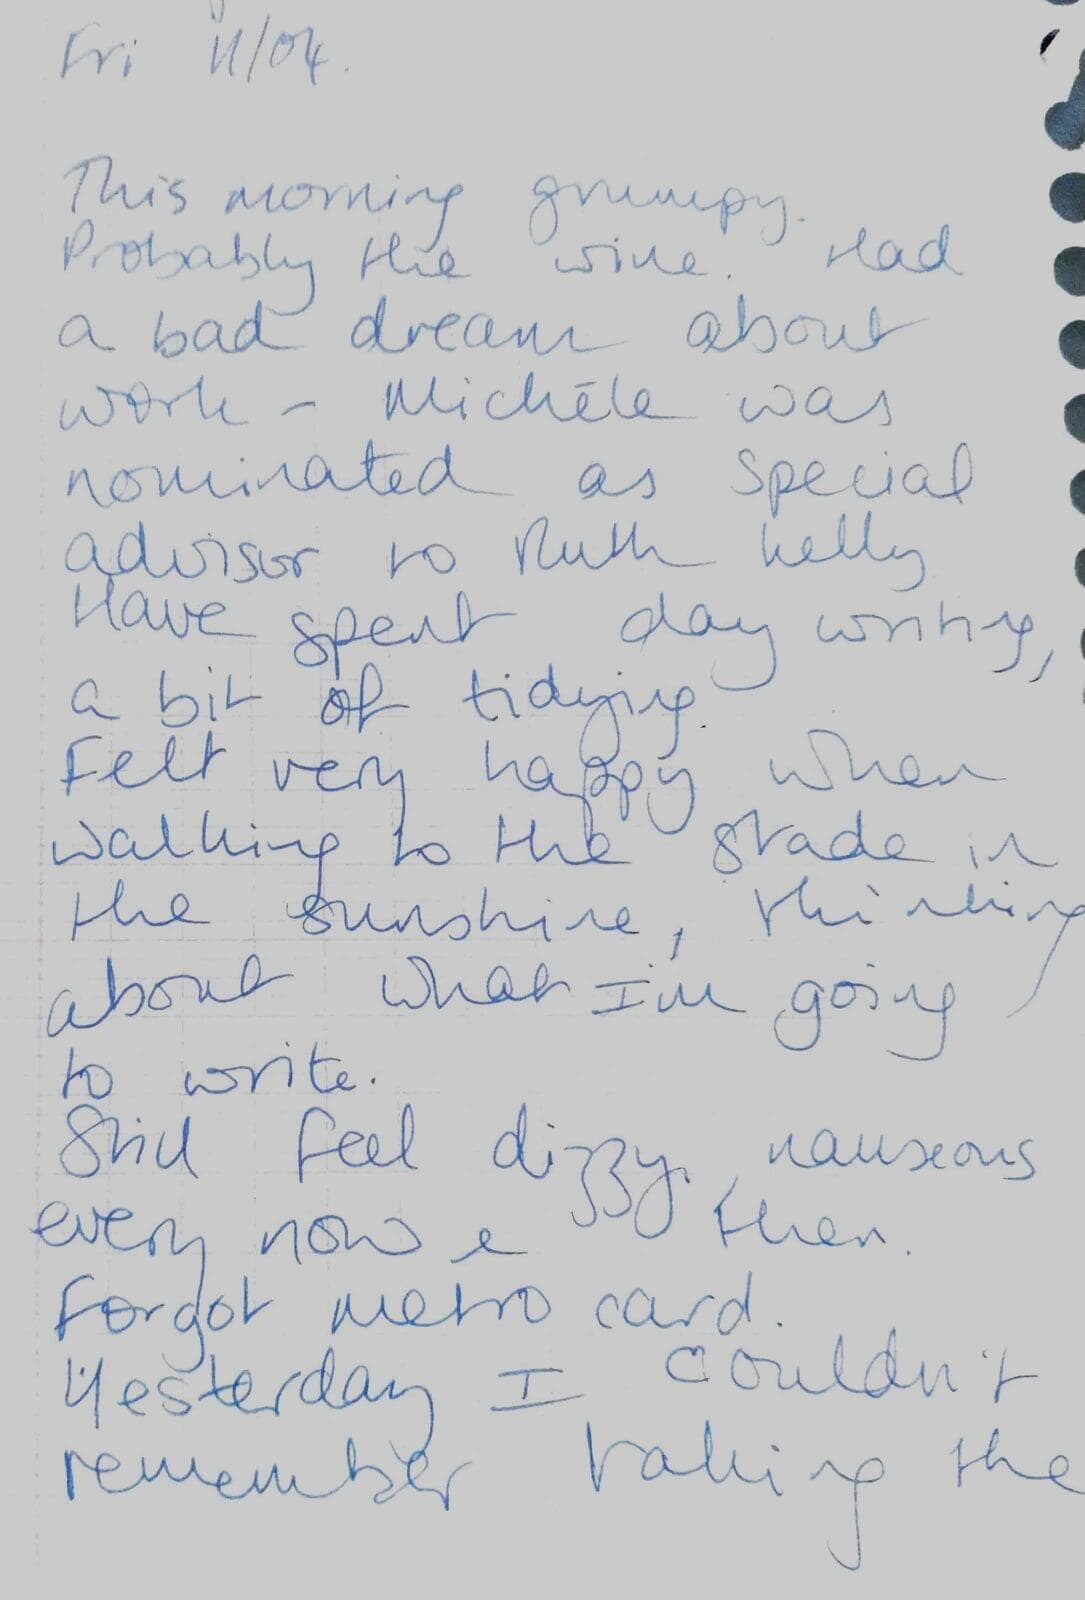 Fri 11/04.
This morning grumpy.
Probably the wine. Had
a bad dream about
work - Michèle was
nominated as special
advisor to Ruth Kelly
Have spent day writing,
a bit of tidying.
Felt very happy when
walking to the stade in
the sunshine, thinking
about what I'm going
to write.
Still feel dizzy, nauseous
every now e then.
Forgot metro card.
Yesterday I couldn't
remember taking the